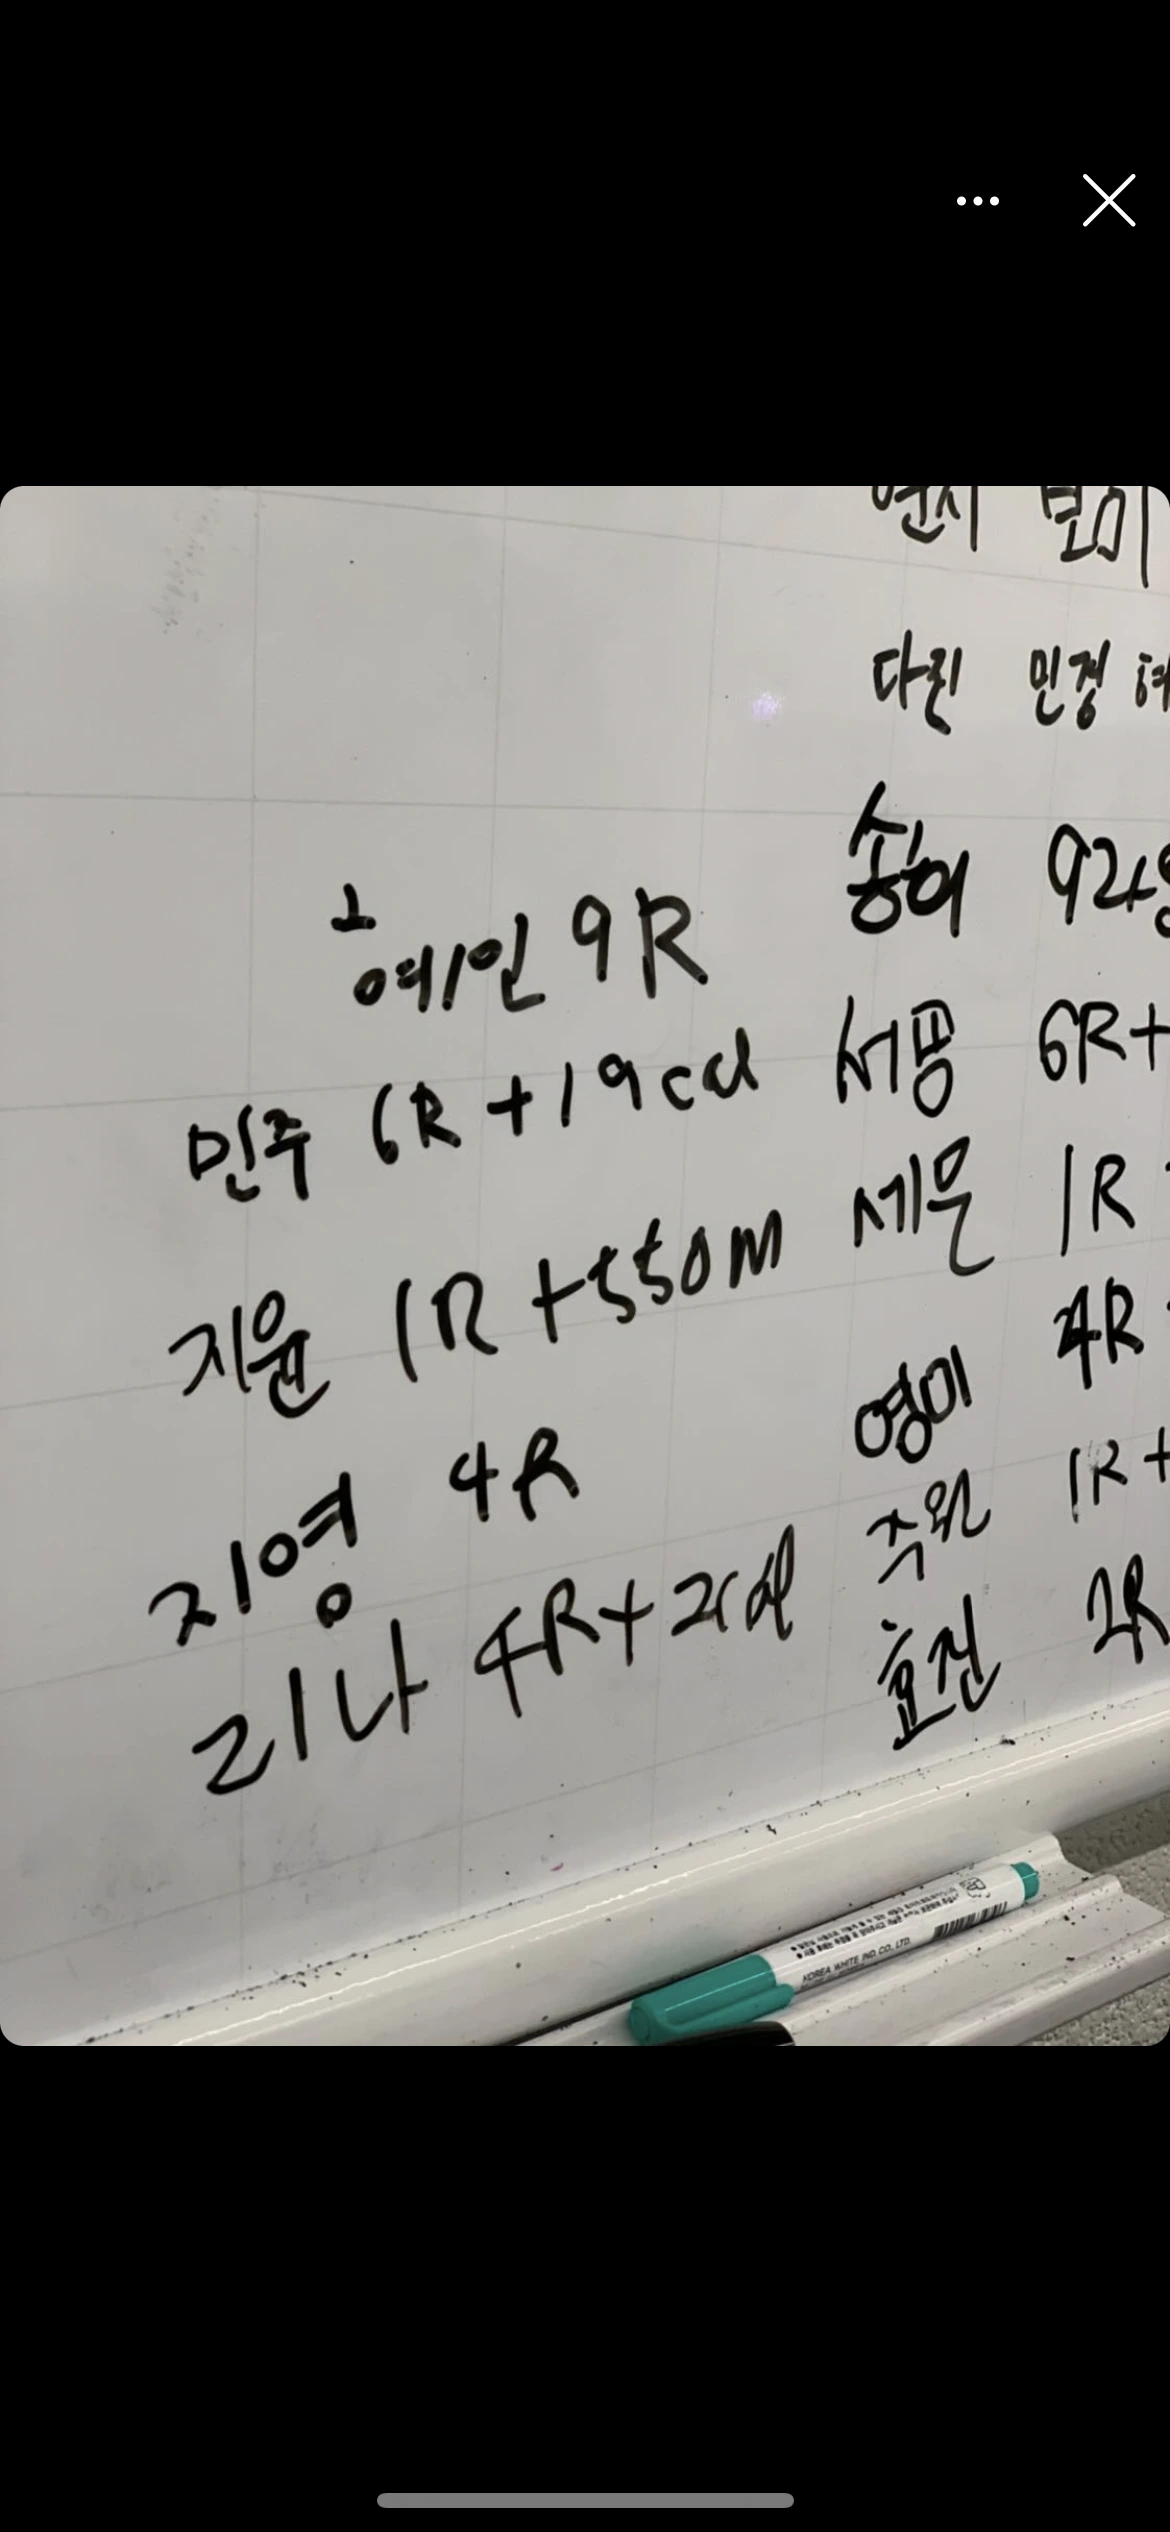 연지 보미
다린 민경 혜
송이
혜인 9R
서몽 6R+
민주 6R+19cal
세은 1R
지윤 1R+550M
4R
영미
지영 4R
주원 1R+
리나 4R+2cal
효진 2R
KOREA WHITE IND. CO., LTD.